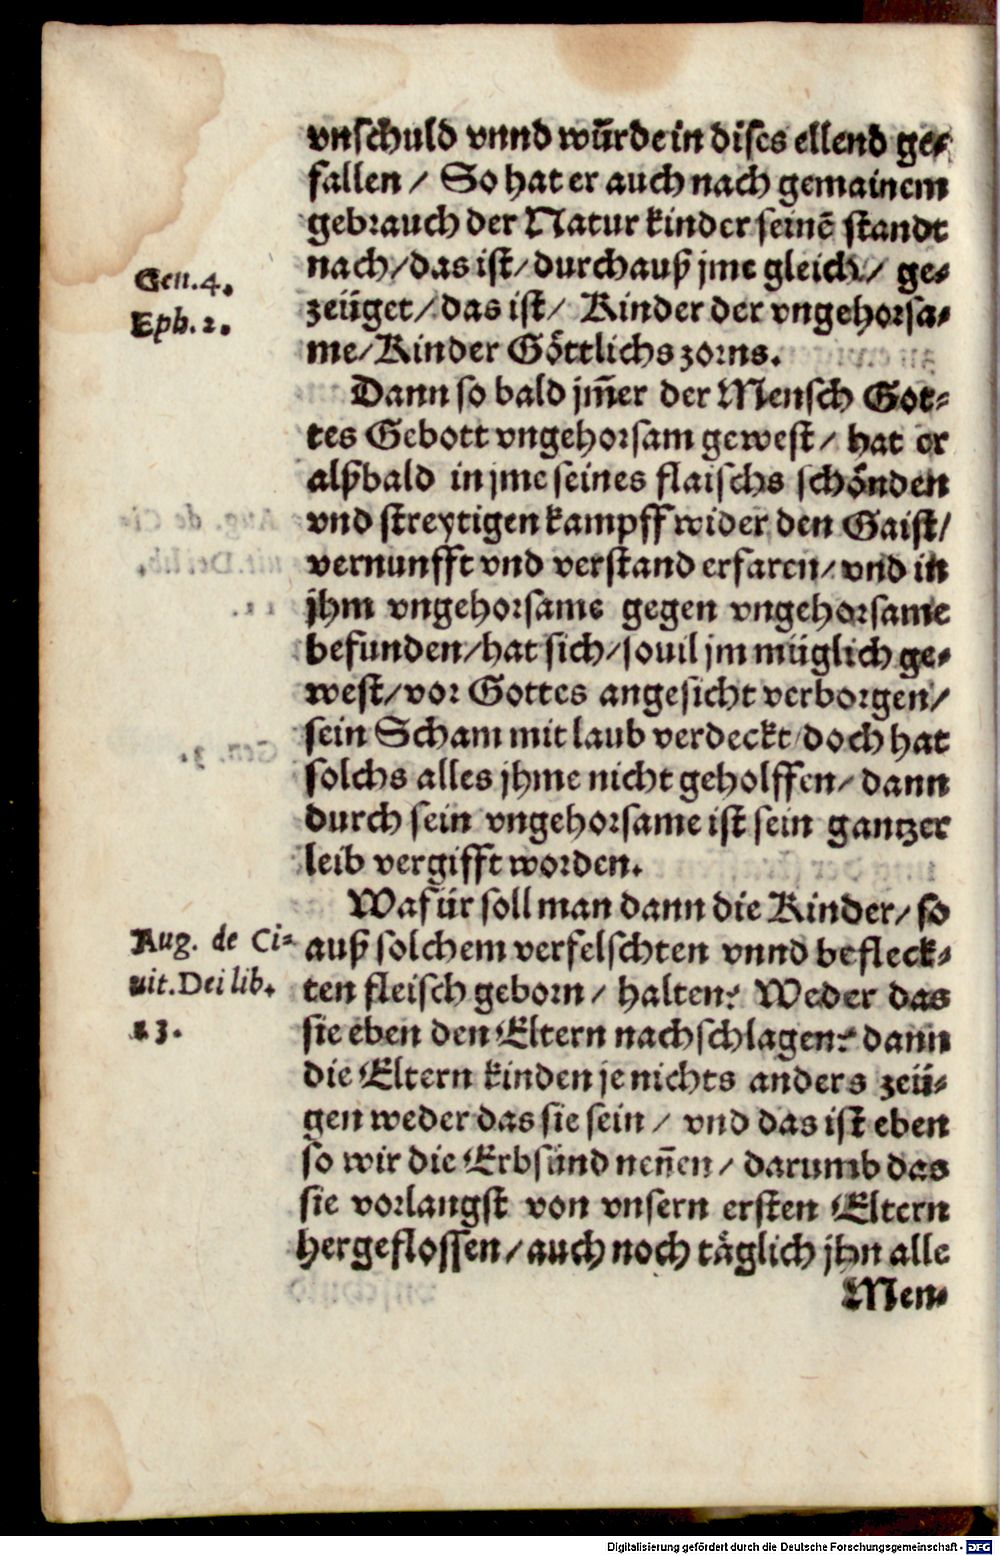 vnschuld vnnd wuͤrde in dises ellend ge-
fallen / So hat er auch nach gemainem
gebrauch der Natur kinder seinē standt
nach / das ist / durchauß jme gleich / ge-
Gen. 4.
zeüget / das ist / Kinder der vngehorsa-
Eph. 2.
me / Kinder Göttlichs zorns.
Dann so bald jm̃er der Mensch Got-
tes Gebott vngehorsam gewest / hat er
alßbald in jme seines flaischs schönden
vnd streytigen kampff wider den Gaist /
vernunfft vnd verstand erfaren / vnd in
jhm vngehorsame gegen vngehorsame
befunden / hat sich / souil jm müglich ge-
west / vor Gottes angesicht verborgen /
sein Scham mit laub verdeckt / doch hat
solchs alles jhme nicht geholffen / dann
durch sein vngehorsame ist sein gantzer
leib vergifft worden.
Wafür soll man dann die Kinder / so
Aug. de Ci-
uit. Dei lib.
13.
auß solchem verfelschten vnnd befleck-
ten fleisch geborn / halten? Weder das
sie eben den Eltern nachschlagen? dann
die Eltern kinden je nichts anders zeü-
gen weder das sie sein / vnd das ist eben
so wir die Erbsünd neñen / darumb das
sie vorlangst von vnsern ersten Eltern
hergeflossen / auch noch täglich jhn alle
Men-
Digitalisierung gefördert durch die Deutsche Forschungsgemeinschaft - DFG